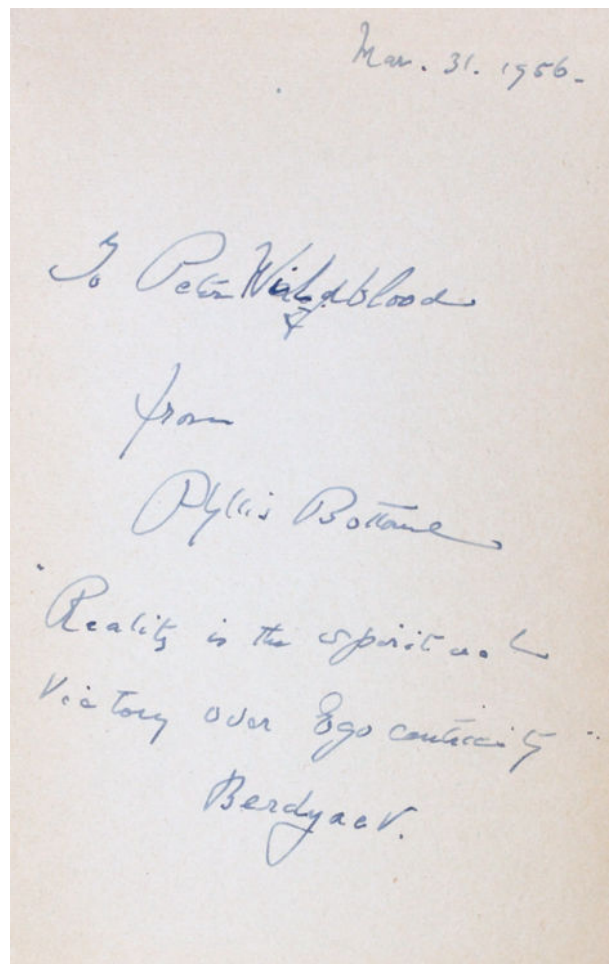 Mar. 31. 1956.
To Peter Wildeblood
from
Phyllis Bottome
"Reality is the spiritual
Victory over Egocentricity"
Berdyaev.